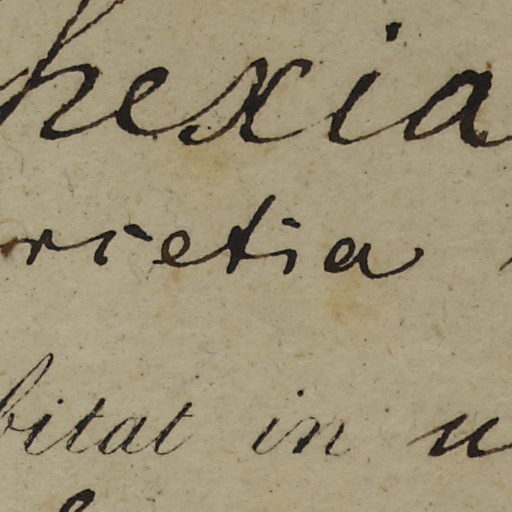 hexia
rietia
bitat in u